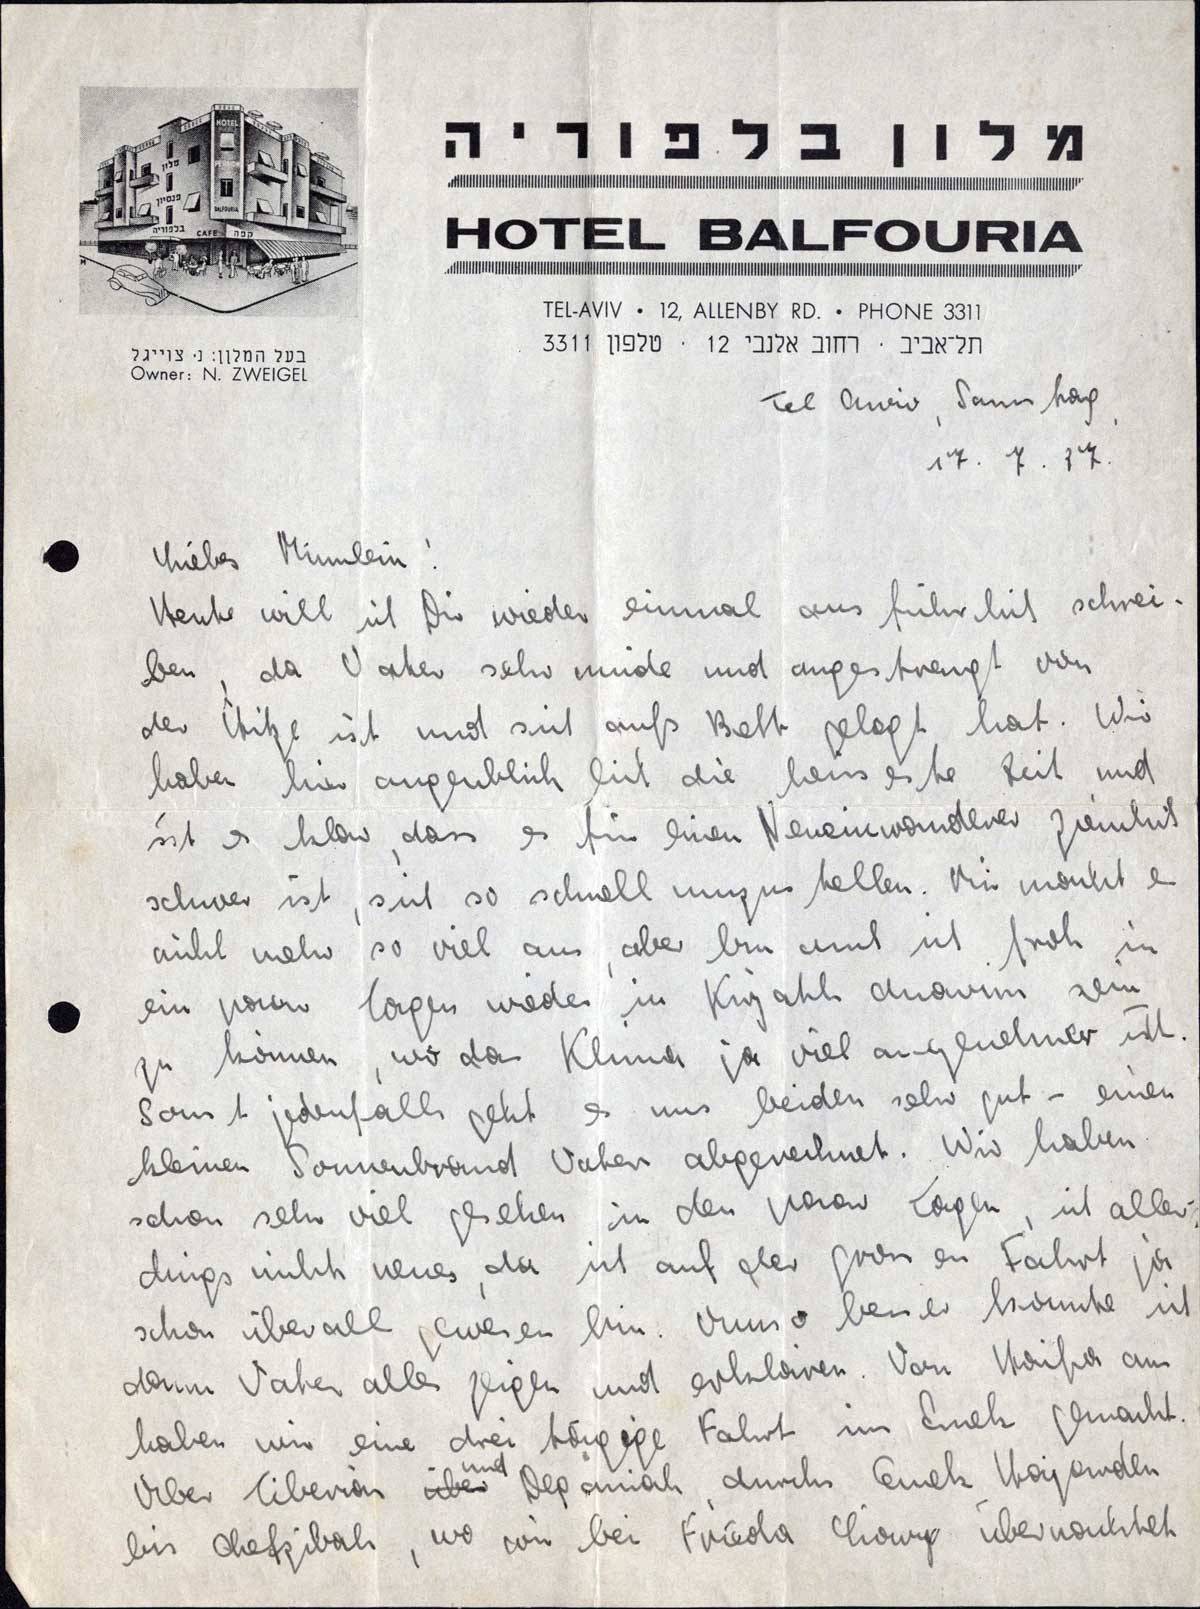 HOTEL
מלון
פנסיון
BALFOURIA
בלפוריה
CAFE קפה
מלון בלפוריה
HOTEL BALFOURIA
TEL-AVIV • 12, ALLENBY RD. • PHONE 3311
תל־אביב · רחוב אלנבי 12 · טלפון 3311
בעל המלון: נ. צוייגל
Owner: N. ZWEIGEL
Tel Aviv, Samstag,
17. 7. 37.
Liebes Mimmlein!
Heute will ich Dir wieder einmal ausführlich schrei-
ben, da Vater sehr müde und angestrengt von
der Hitze ist und sich aufs Bett gelegt hat. Wir
haben hier augenblicklich die heisseste Zeit und
ist es klar, dass es für einen Neueinwanderer ziemlich
schwer ist, sich so schnell umzustellen. Mir macht es
nicht mehr so viel aus, aber bin auch ich froh in
ein paar Tagen wieder in Kirjath anawim sein
zu können, wo das Klima ja viel angenehmer ist.
Sonst jedenfalls geht es uns beiden sehr gut – einen
kleinen Sonnenbrand Vaters abgerechnet. Wir haben
schon sehr viel gesehen in den paar Tagen, ich aller-
dings nichts neues, da ich auf der grossen Fahrt ja
schon überall gewesen bin. Umso besser konnte ich
dann Vater alles zeigen und erklären. Von Haifa aus
haben wir eine dreitägige Fahrt im Emek gemacht.
Über Tiberias über und Deganiah, durchs Emek Hajarden
bis Chefzibah, wo wir bei Frieda übernachtet